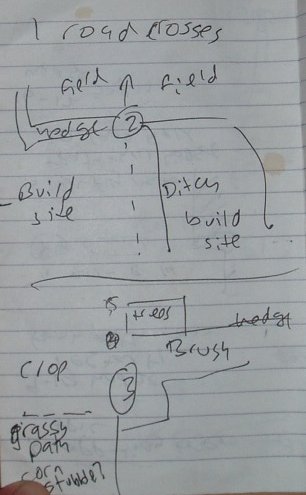 1 road crosses
field field
hedge 2
Build
site
Ditch
build
site
trees
hedge
Brush
Crop
3
grassy
path
corn
stubble?